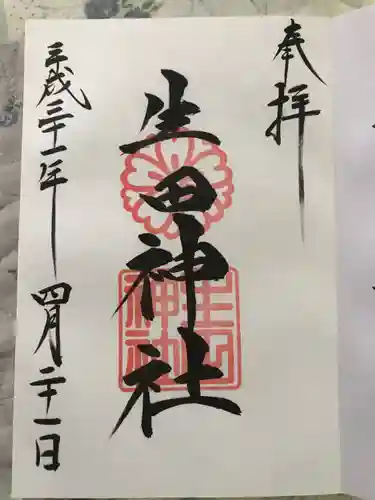 奉拝
生田神社
平成三十一年 四月二十一日
生田神社